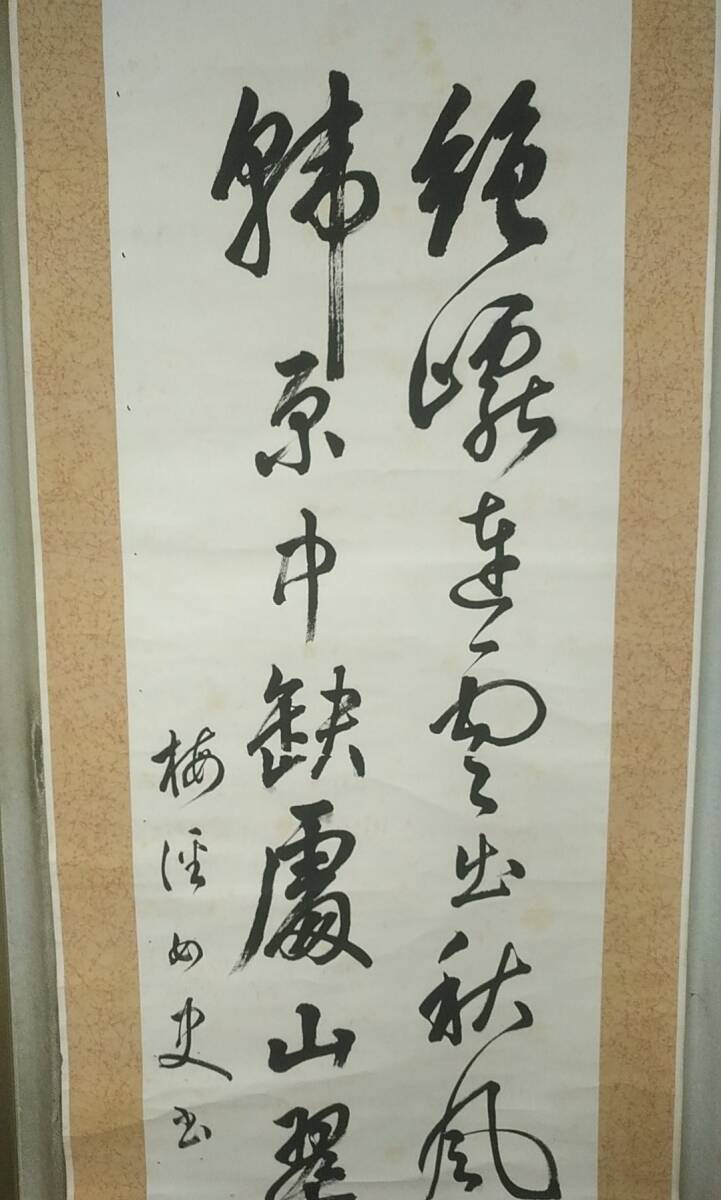 絶巘連雲出秋風
韓原中缺處山翠
梅女史書